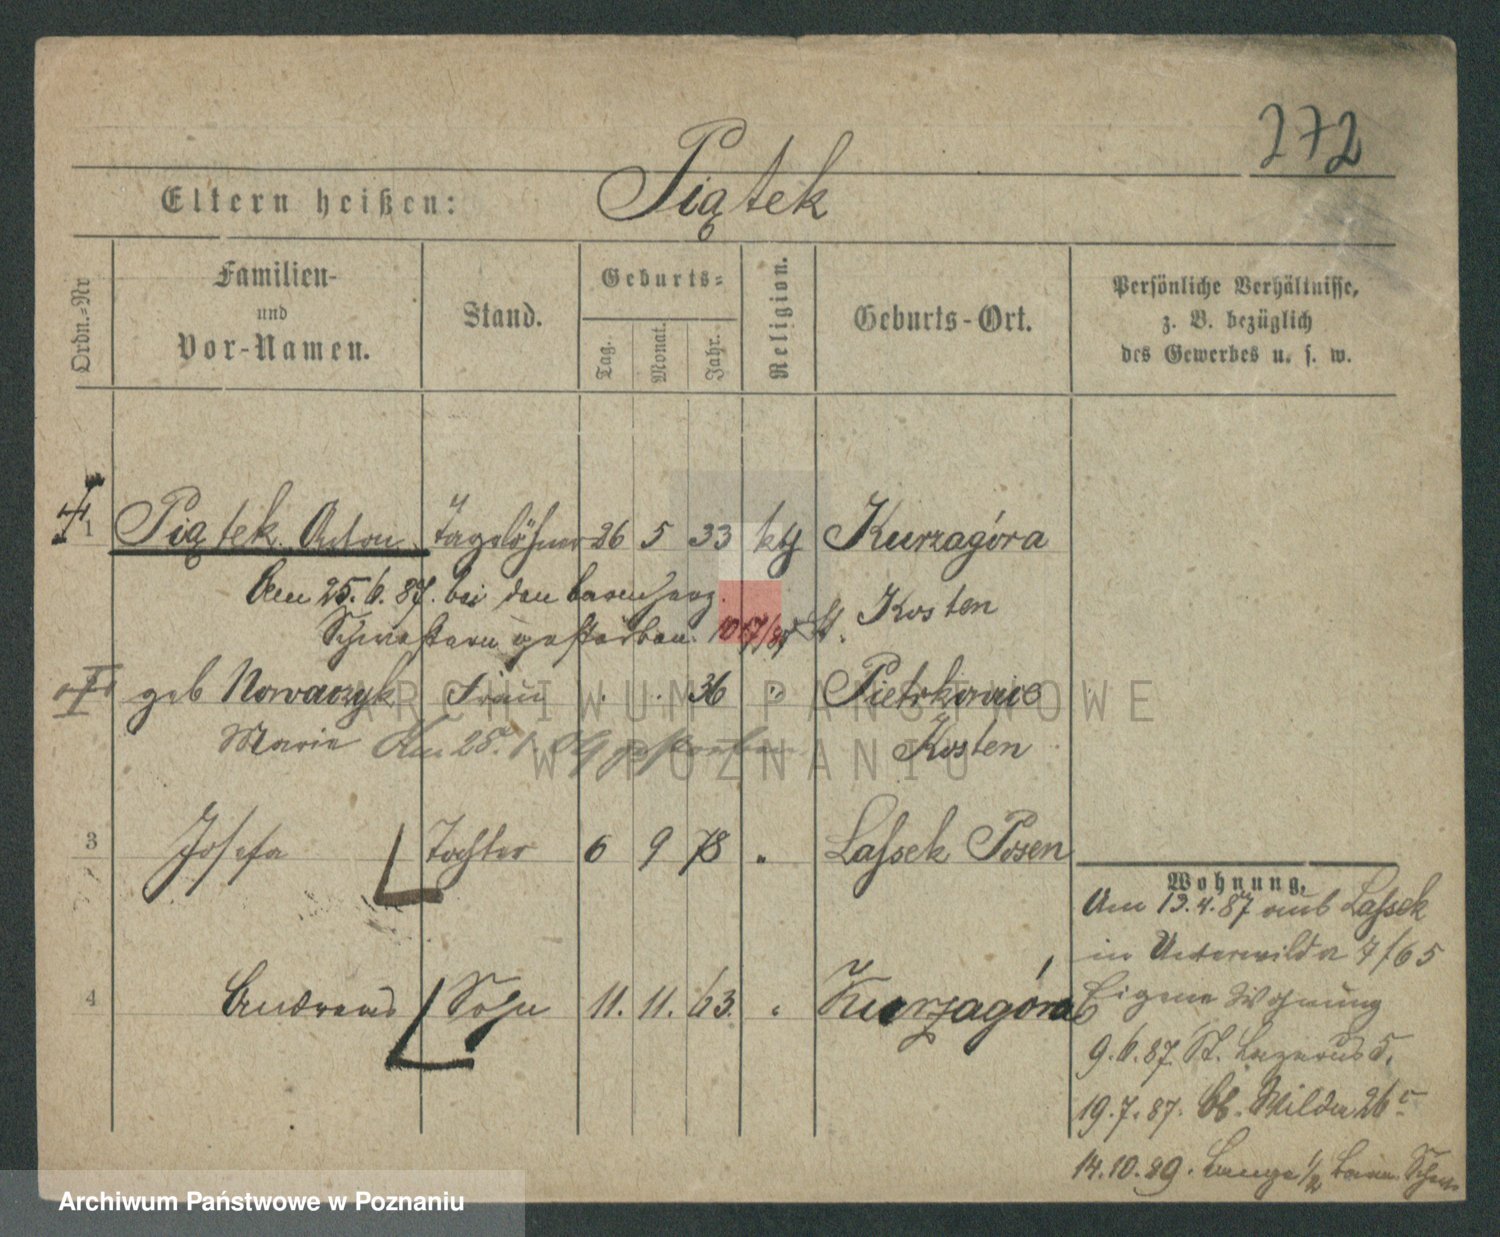 272
Eltern heißen: Piątek
Ordn.-Nr
Familien-
und
Vor-Namen.
Stand.
Geburts-
Tag.
Monat.
Jahr.
Religion.
Geburts-Ort.
Persönliche Verhältnisse,
z. B. bezüglich
des Gewerbes u. s. w.
1 Piątek Anton Tagelöhner 26 5 33 kth Kurzagóra
Am 25.6.87. bei den barmherz. Kosten
Schwestern gestorben.
geb Nowaczyk Frau 36 " Pietrkowic
Marie Am 28. gestorben Kosten
3 Josefa Tochter 6 9 78 " Lassek Posen
4 Andreas Sohn 11. 11. 63. " Kurzagóra
Wohnung.
Am 13.4.87 aus Lassek
in Unterwilda 7/65
Eigene Wohnung
9.6.87. St. Lazarus 5.
19.7.87. Ob. Wilda 26
14.10.89. Lange 1/2 Barm. Schw
ARCHIWUM PAŃSTWOWE
W POZNANIU
Archiwum Państwowe w Poznaniu